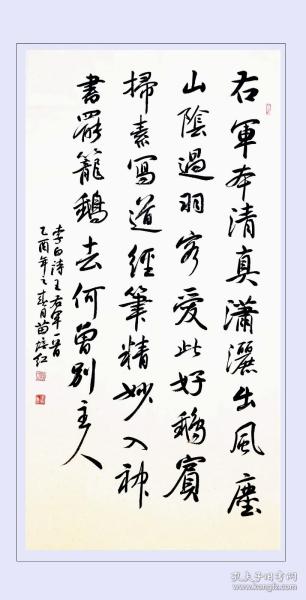 右軍本清真瀟灑出風塵
山陰過羽客愛此好鵝賓
掃素寫道經筆精妙入神
書罷籠鵝去何曾別主人
李白詩王右軍一首
乙酉年之春月苗培红
孔夫子旧书网